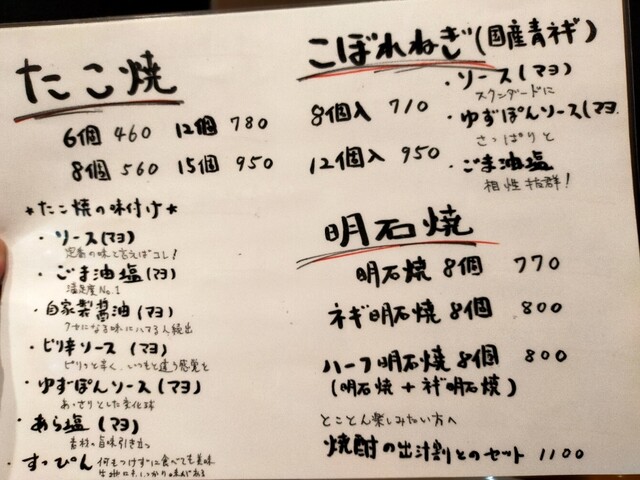 たこ焼
6個 460 12個 780
8個 560 15個 950
*たこ焼の味付け*
・ソース(マヨ)
定番の味と言えばコレ!
・ごま油塩(マヨ)
満足度No.1
・自家製醤油(マヨ)
クセになる味にハマる人続出
・ピリ辛ソース(マヨ)
ピリッと辛く、いつもと違う感覚を
・ゆずぽんソース(マヨ)
あっさりとした変化球
・あら塩(マヨ)
素材の旨味引き立つ
・すっぴん 何もつけずに食べても美味
生地にしっかり味がある
こぼれねぎ(国産青ネギ)
8個入 710
12個入 950
・ソース(マヨ)
スタンダードに
・ゆずぽんソース(マヨ
さっぱりと
・ごま油塩
相性抜群!
明石焼
明石焼 8個 770
ネギ明石焼 8個 800
ハーフ明石焼 8個 800
(明石焼+ネギ明石焼)
とことん楽しみたい方へ
焼酎の出汁割とのセット 1100